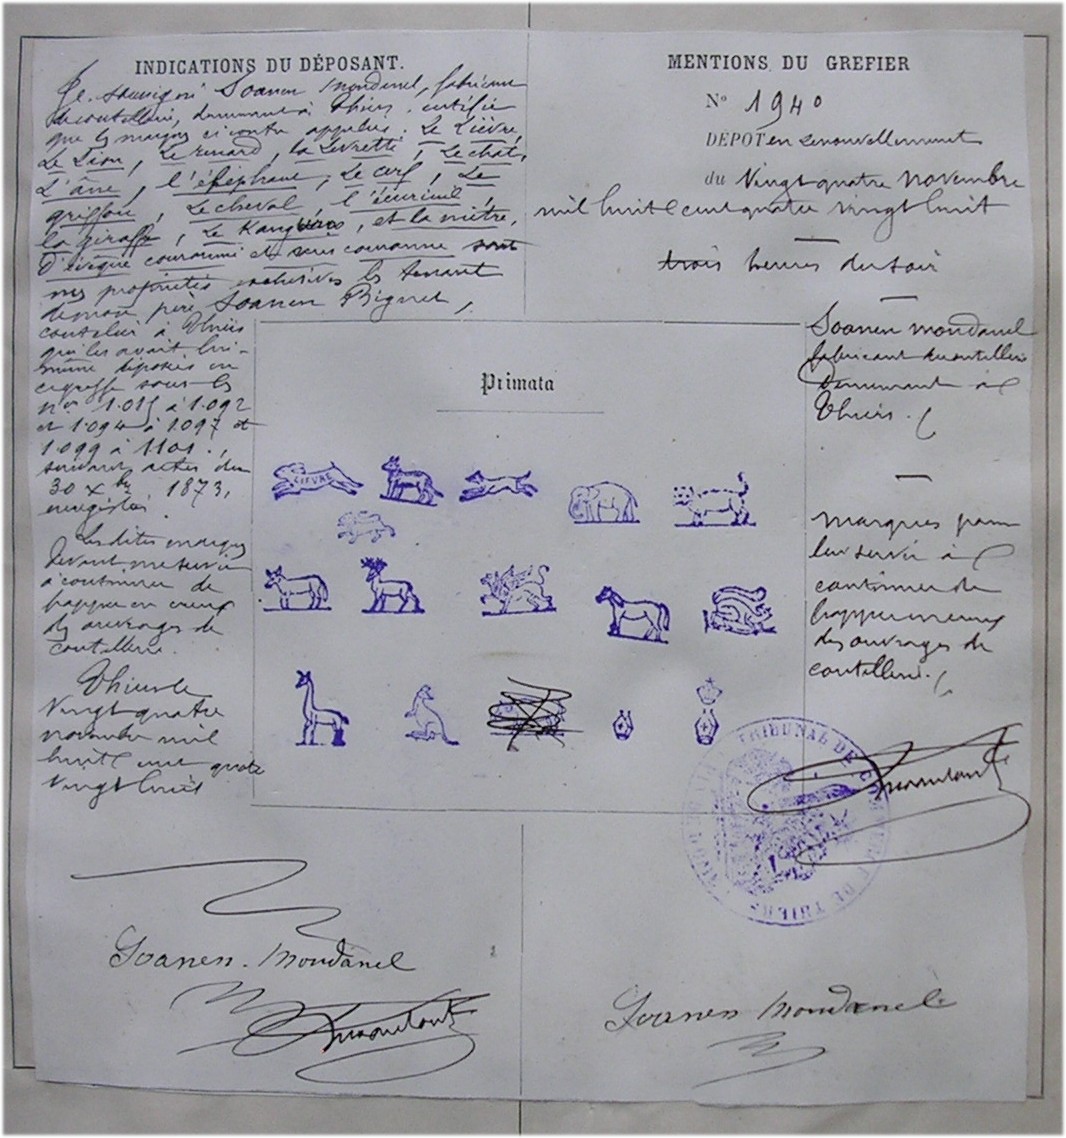 INDICATIONS DU DÉPOSANT.
Je soussigné Soanen Mondanel, fabricant
de coutellerie, demeurant à Thiers, certifie
que les marques ci contre appelées : Le Lièvre,
Le Lion, Le renard, la Levrette, Le chat,
L'âne, l'éléphant, Le cerf, Le
griffon, Le cheval, l'écureuil,
la giraffe, Le Kanguroo, et la mitre
d'évêque couronné et sans couronne sont
mes propriétés exclusives les tenant
de mon père Soanen Bignet,
coutelier à Thiers
qui les avait lui-
même déposées au
greffe sous les
nos 1.015 à 1.092
et 1.094 à 1.097 et
1.099 à 1101,
suivant actes du
30 Xbre 1873,
enregistrés.
Lesdites marques
devant me servir
à continuer de
frapper en creux
des ouvrages de
coutellerie.
Thiers le
Vingt quatre
novembre mil
huit cent quatre
Vingt huit
Soanen-Mondanel
MENTIONS DU GREFIER
No 1940
DÉPOT en renouvellement
du Vingt quatre Novembre
mil huit cent quatre vingt huit
trois heures du soir
Soanen Mondanel
fabricant de coutellerie
Demeurant à
Thiers.
Marques pour
lui servir à
continuer de
frapper en creux
des ouvrages de
coutellerie.
Primata
LIEVRE
TRIBUNAL DE COMMERCE DE THIERS
Soanen Mondanel